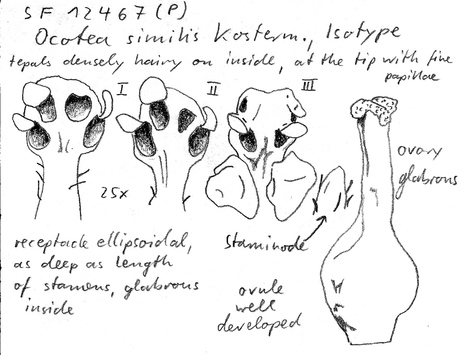 SF 12467 (P)
Ocotea similis Kosterm., Isotype
tepals densely hairy on inside, at the tip with fine
papillae
I
II
III
25x
ovary
glabrous
staminode
receptacle ellipsoidal,
as deep as length
of stamens, glabrous
inside
ovule
well
developed